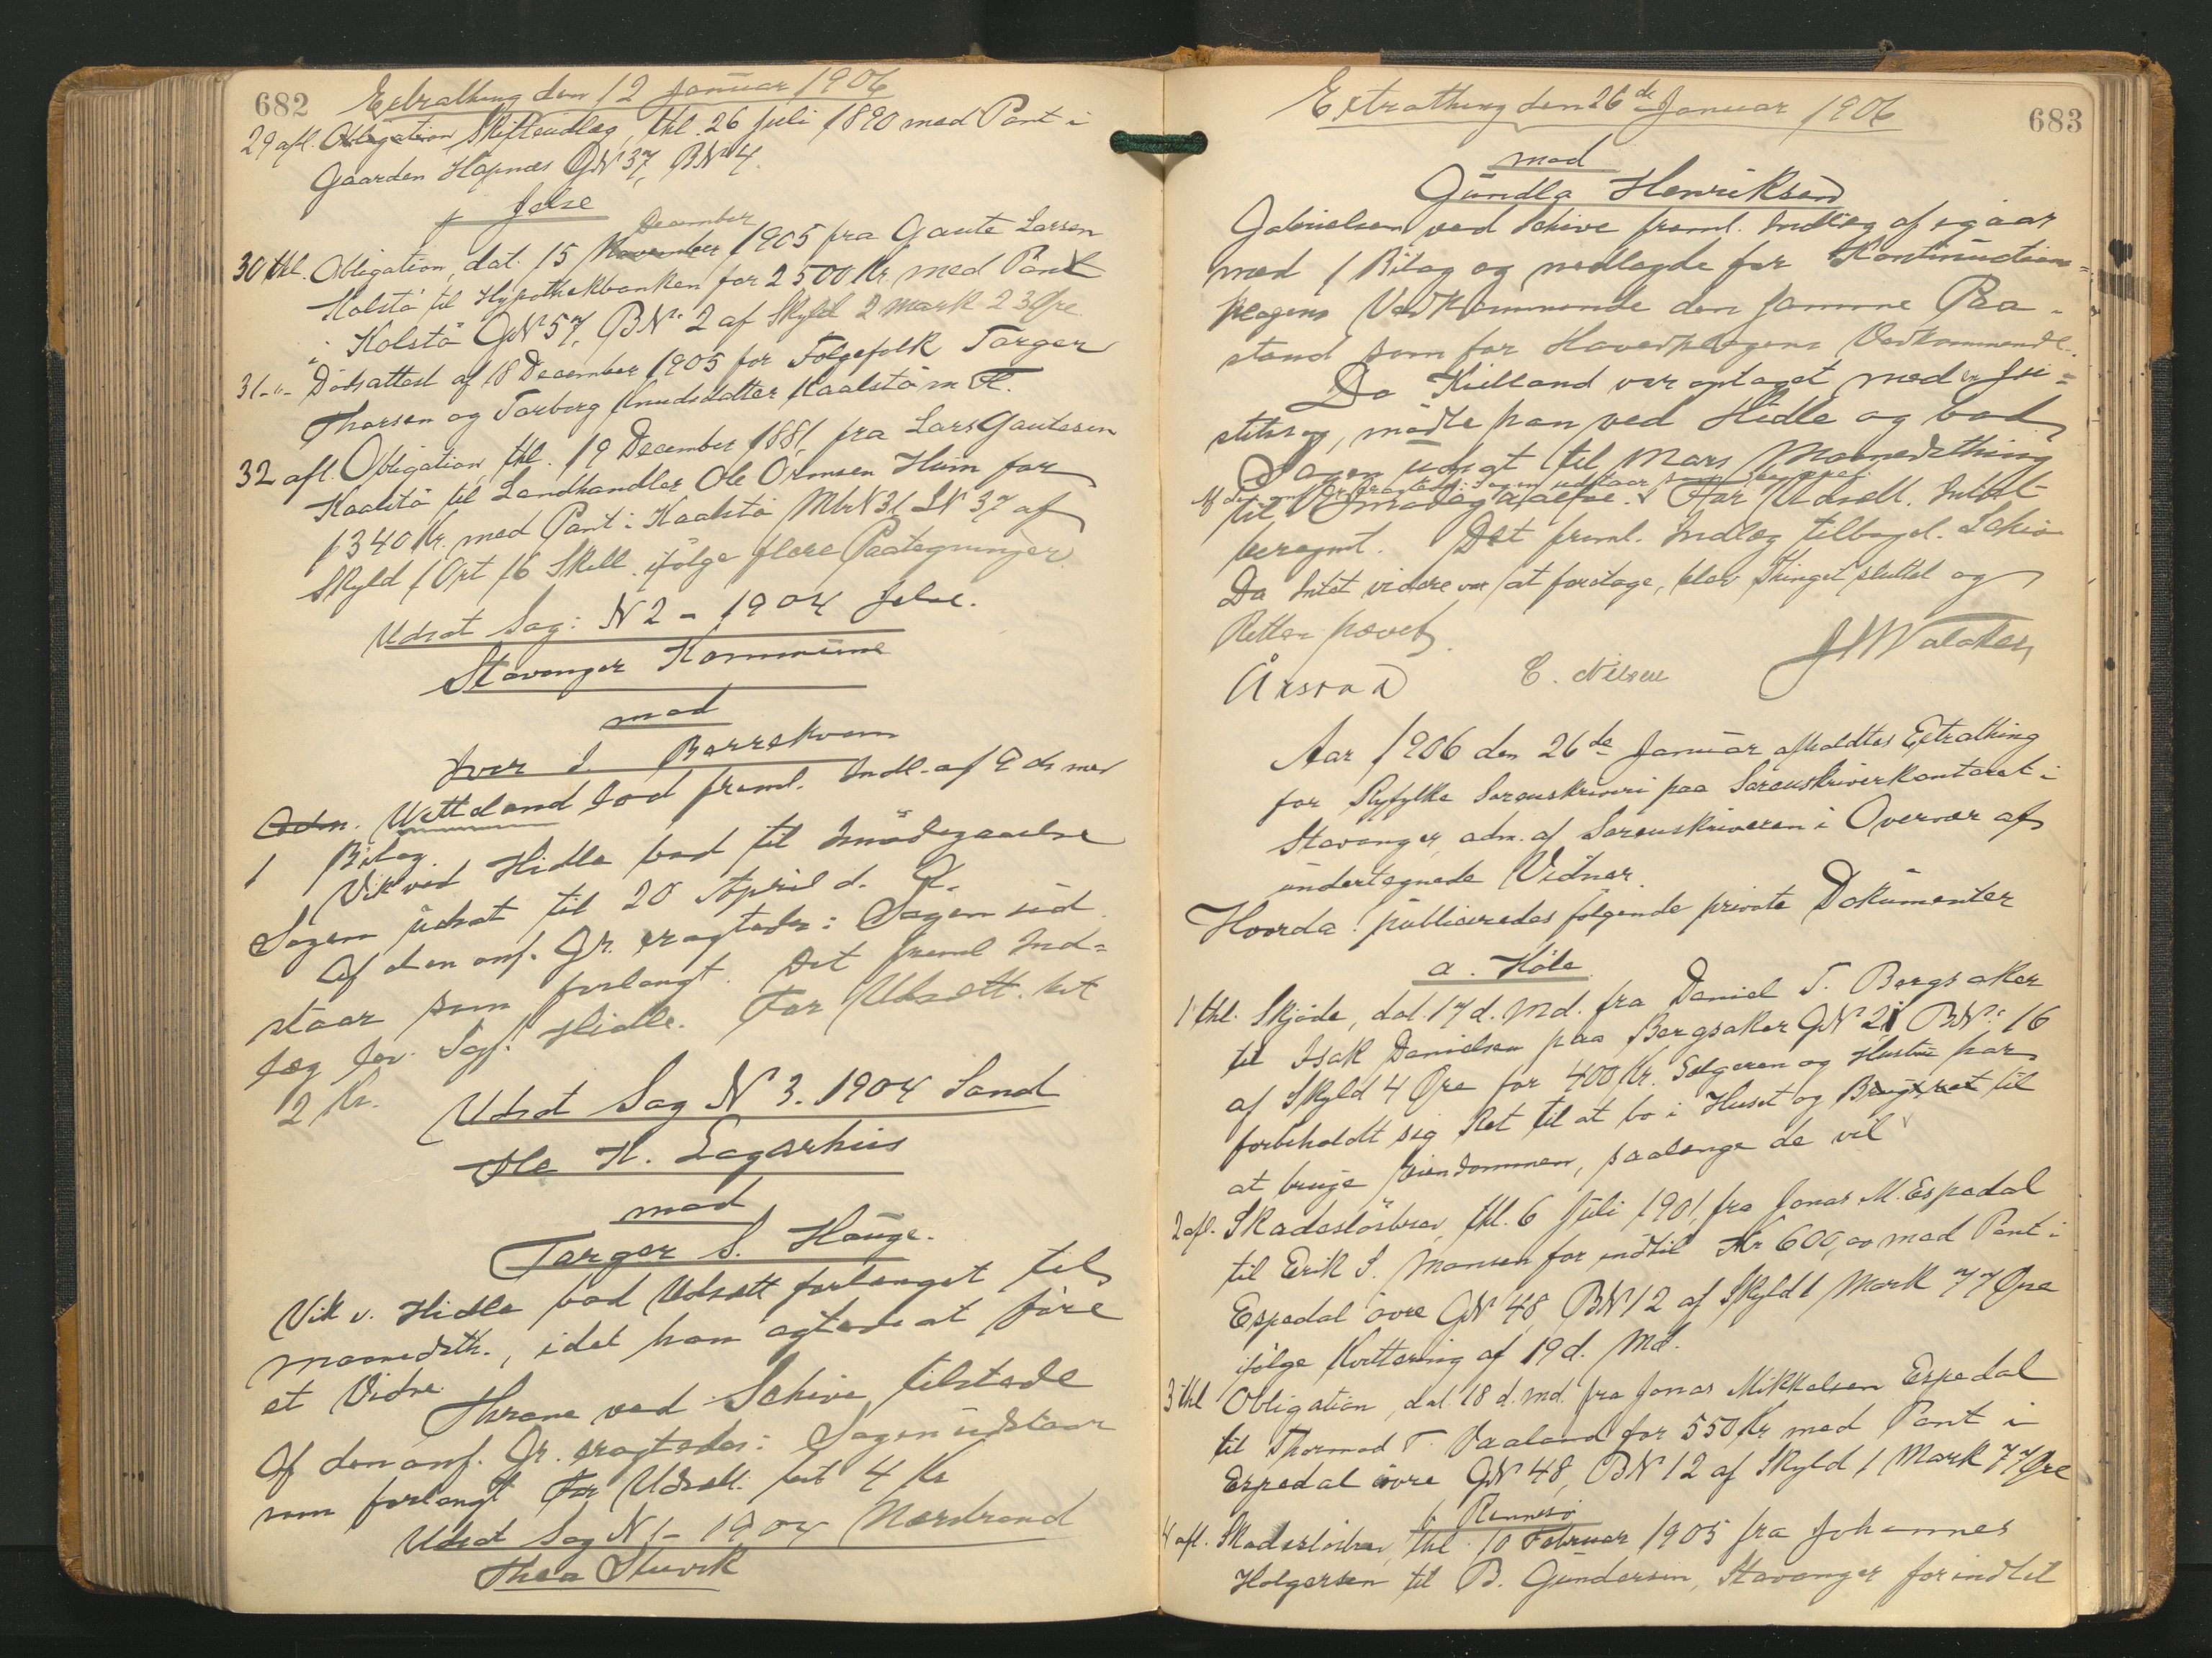 682
Extrathing den 12 Januar 1906
29 afl. Obligation, Skifteudlæg, thl. 26 Juli 1890 med Pant i
Gaarden Høpnæs GN 37, BN 4.
f Jelse
December
30 thl. Obligation, dat. 15 November 1905 fra Gaute Larsen
Kolstø til Hypothekbanken for 2500 Kr. med Pant
i Kolstø GN 57, BN. 2 af Skyld 2 Mark 23 Øre
31 -"- Dødsattest af 18 December 1905 for Følgefolk Torger
Thorsen og Torborg Knudsdatter Kaalstø m fl.
32 afl. Obligation, thl. 19 December 1881, fra Lars Gautesen
Kaalstø til Landhandler Ole Ormsen Him for
1340 Kr. med Pant i Kaalstø MtrN 31 LN 37 af
Skyld 1 Ort 16 Skill. ifølge flere Paategninger.
Udsat Sag: N 2 - 1904 Jelse.
Stavanger Kommune
mod
Iver I Berrekvam
Adm. Wetteland lod freml. Indl. af 9 ds med
1 Bilag.
Vik ved Hidle bad til Imødegaaelse
Sagen udsat til 20 April d. A.
Af den anf. Gr. eragtedes: Sagen ud
staar som forlangt. Det freml Ind=
læg lev. Sagf. Hidle. For Udsætt. bet
2 Kr.
Udsat Sag N 3. 1904 Sand
Ole K. Lagarhus
mod
Torger S. Hauge.
Vik v. Hidle bad Udsætt forlænget til
Maanedsth., idet han agtede at føre
et Vidne.
Thrane ved Schive tilstede
Af den anf. Gr. eragtedes: Sagen udstaar
som forlangt For Udsætt. bet 4 Kr
Udsat Sag N 1 - 1904 Nærstrand
Thea Stuvik
Extrathing den 26de Januar 1906
683
mod
Gundla Henriksen
Gabrielsen ved Schive freml. Indlæg af igaar
med 1 Bilag og nedlagde for Kontinuation=
klagens Vedkommende den samme Paa=
stand som for Hovedklagens Vedkommende.
Da Kielland var optaget med en Ju=
stitssag, mødte han ved Hidle og bad
Sagen udsat til Mars Maanedsthing
Af den anf. Gr. eragtedes: Sagen udstaar som begjæret.
til Imødegaaelse. For Udsætt. Intet
beregnet. Det freml. Indlæg tilbagel. Schive
Da Intet videre var at foretage, blev Thinget sluttet og
Retten hævet.
Årstad C. Nilsen
Aar 1906 den 26de Januar afholdtes Extrathing
for Ryfylke Sorenskriveri paa Sorenskriverkontoret i
Stavanger, adm. af Sorenskriveren i Overvær af
undertegnede Vidner.
Hvorda: publiceredes følgende private Dokumenter
a. Høle
1 thl. Skjøde, dat. 17 d. Md. fra Daniel T. Bergsaker
til Isak Danielsen paa Bergsaker GN 21 BN. 16
af Skyld 4 Øre for 400 Kr. Sælgeren og Hustru har
forbeholdt sig Ret til at bo i Huset og Brugsret til
at bruge Eiendommen, saalænge de vil
2 afl. Skadesløsbrev, thl. 6 Juli 1901, fra Jonas M. Espedal
til Erik S. Monsen for indtil Kr 600,00 med Pant i
Espedal øvre GN 48 BN 12 af Skyld 1 Mark 77 Øre
ifølge Kvittering af 19 d. Md.
3 thl Obligation, dat. 18 d. Md. fra Jonas Mikkelsen Espedal
til Thormod T. Vaaland for 550 Kr med Pant i
Espedal øvre GN 48, BN 12 af Skyld 1 Mark 77 Øre
b Rennesø
4 afl. Skadesløsbrev, thl. 10 Februar 1905 fra Johannes
Holgersen til B. Gundersen, Stavanger for indtil